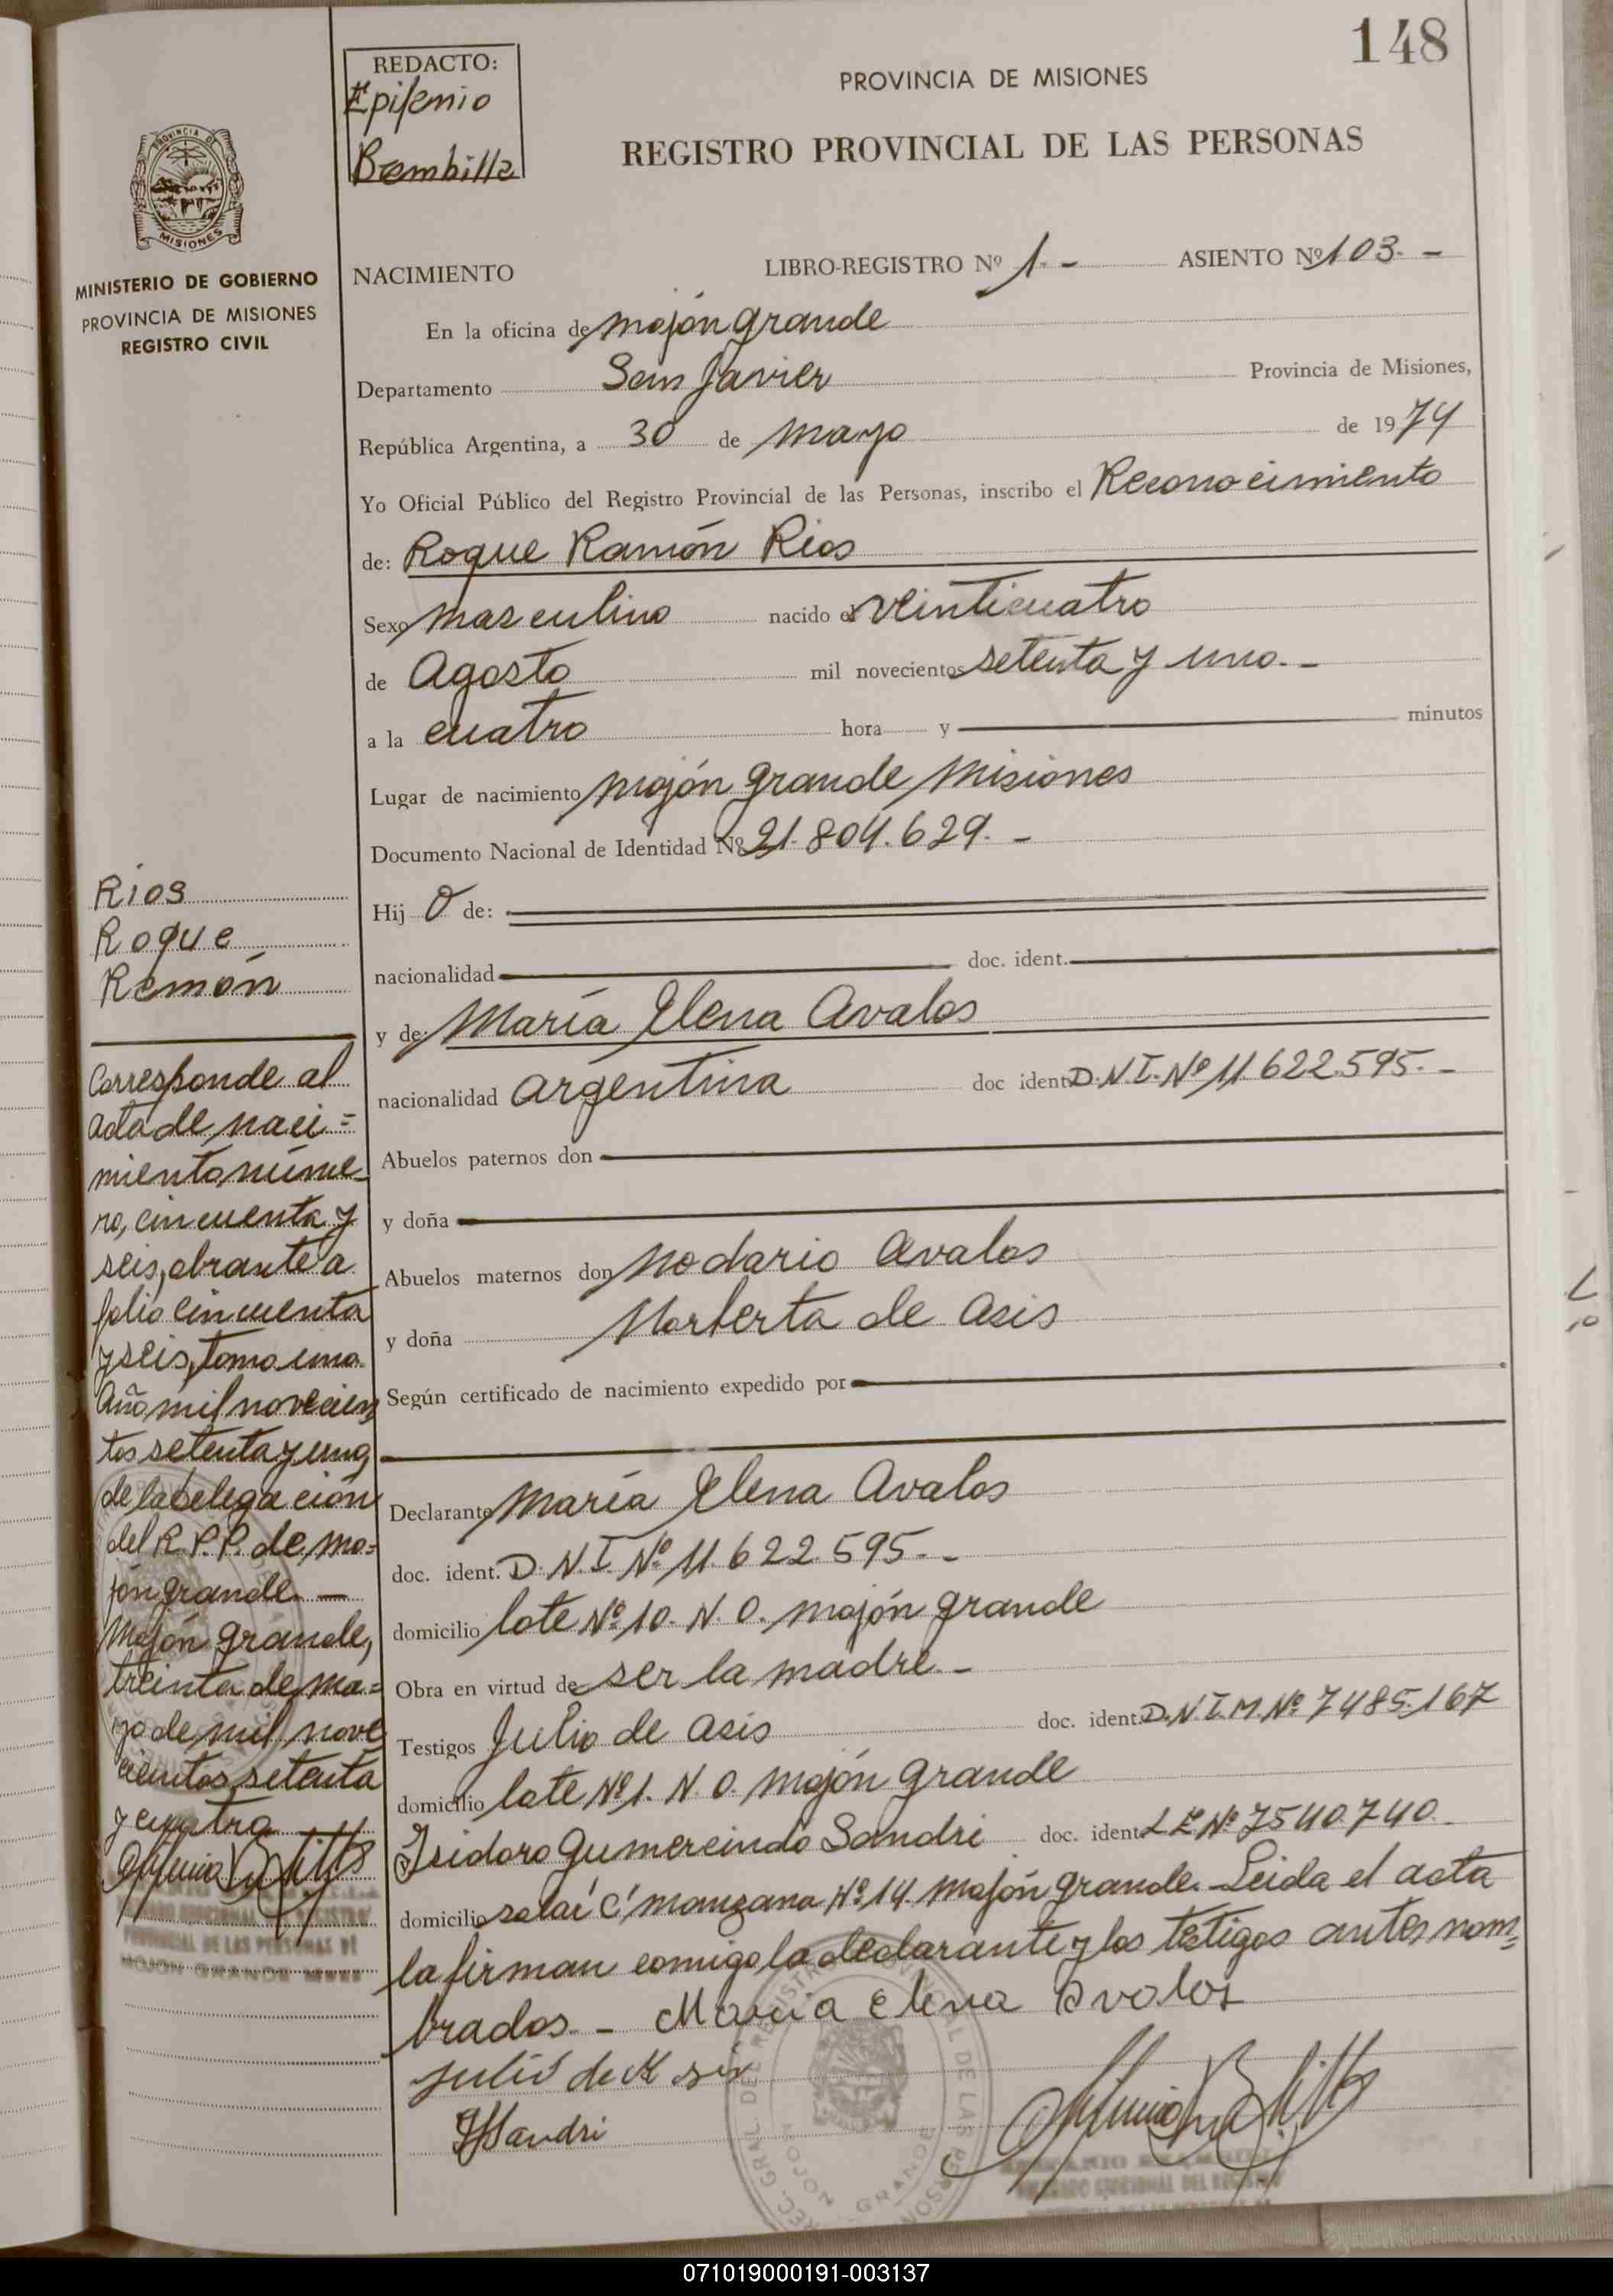 148
REDACTO:
Epifenio
Brambilla
PROVINCIA DE MISIONES
REGISTRO PROVINCIAL DE LAS PERSONAS
PROVINCIA DE
MISIONES
MINISTERIO DE GOBIERNO
PROVINCIA DE MISIONES
REGISTRO CIVIL
NACIMIENTO LIBRO-REGISTRO Nº 1.- ASIENTO Nº 103.-
En la oficina de mojón grande
Departamento San Javier Provincia de Misiones,
República Argentina, a 30 de mayo de 1974
Yo Oficial Público del Registro Provincial de las Personas, inscribo el Reconocimiento
de: Roque Ramón Rios
Sexo masculino nacido el veinticuatro
de Agosto mil novecientos setenta y uno.-
a la cuatro hora y minutos
Lugar de nacimiento mojón grande Misiones
Documento Nacional de Identidad Nº 21.804.629.-
Hij o de:
nacionalidad doc. ident.
y de: María Elena Avalos
nacionalidad argentina doc ident D.N.I. Nº 11.622.595.-
Abuelos paternos don
y doña
Abuelos maternos don Nodario Avalos
y doña Norberta de Asis
Según certificado de nacimiento expedido por
Declarante María Elena Avalos
doc. ident. D.N.I. Nº 11.622.595.-
domicilio lote Nº 10. N.O. mojón grande
Obra en virtud de ser la madre.-
Testigos Julio de Asis doc. ident. D.N.I.M. Nº 7485.167
domicilio lote Nº 1. N.O. mojón grande
Isidoro Gumercindo Sandri doc. ident L E Nº 7540.740.
domicilio solar C manzana Nº 14. mojón grande. Leida el acta
la firman comigo la declarante y los testigos antes nom=
brados.- Maria Elena Avalos
Julio de Asis
Sandri
Rios
Roque
Ramón
Corresponde al
acta de naci=
miento, núme-
ro, cincuenta y
seis, obrante a
folio cincuenta
y seis, tomo uno.
Año mil novecien
tos setenta y uno,
de la delegación
del R.P.P. de mo=
jón grande.—
Mojón grande,
treinta de ma=
yo de mil nove
cientos setenta
y cuatro
PROVINCIAL DE LAS PERSONAS DE
MOJON GRANDE
MOJON GRANDE
071019000191-003137